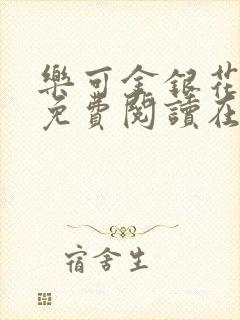 樂可金銀花
免費閱讀在
宿舍生